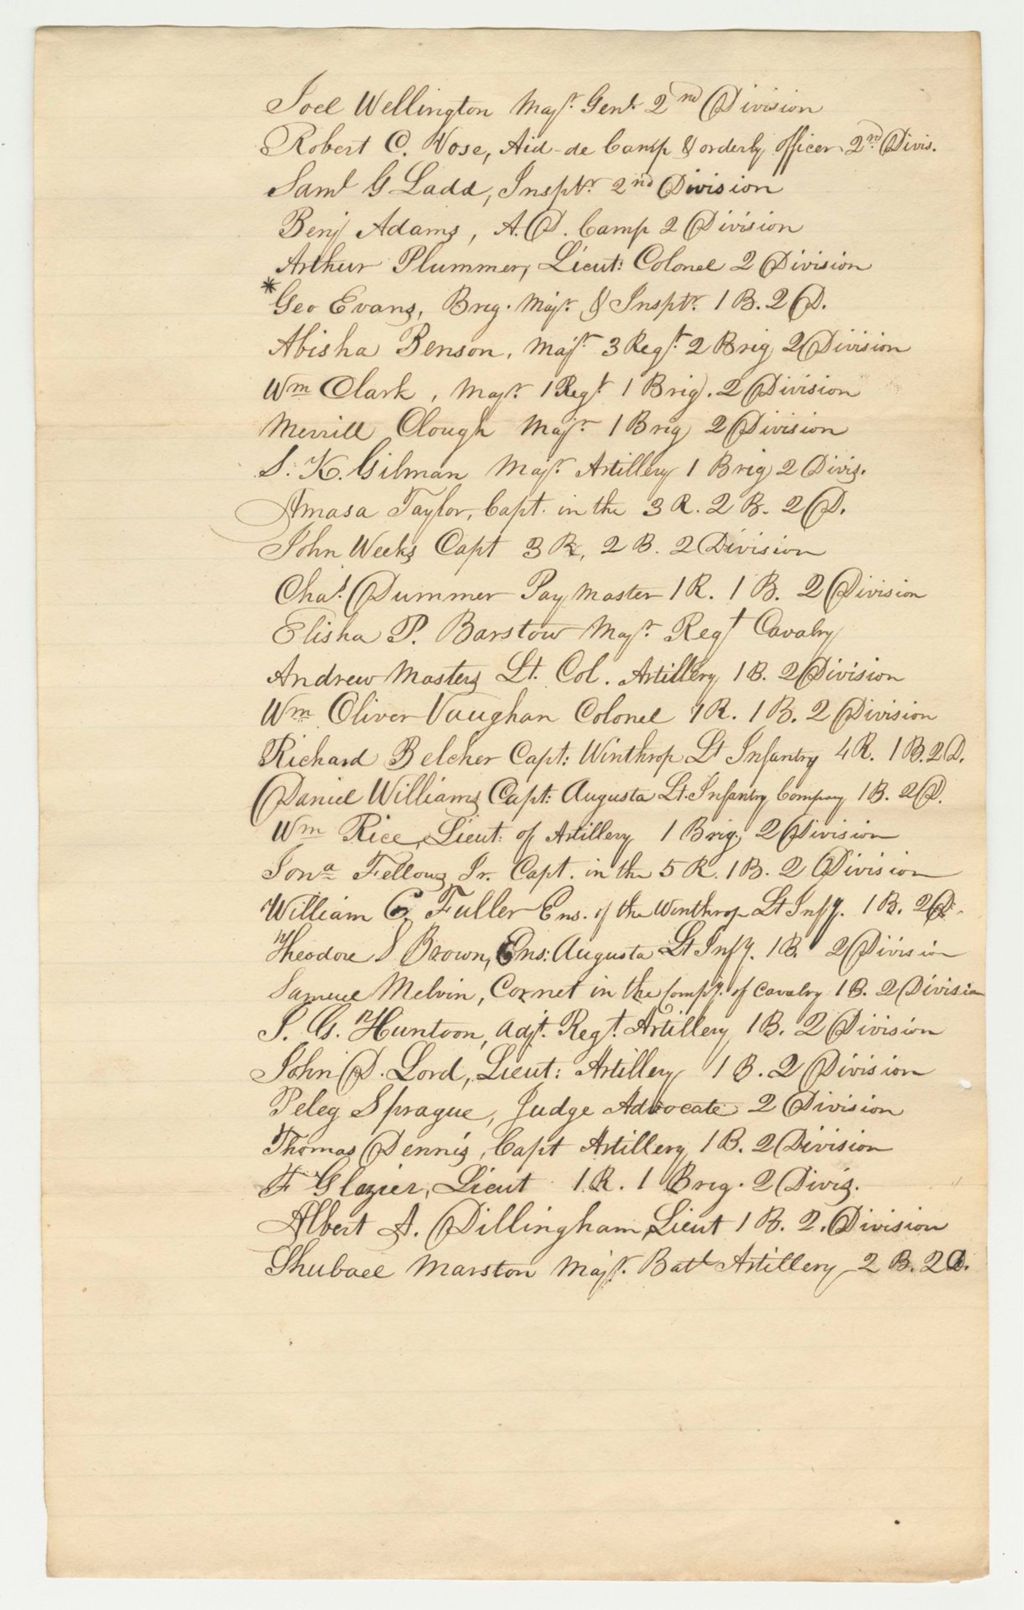 Joel Wellington Majr. Genl. 2nd Division
Robert C. Vose, Aid-de Camp & orderly officer 2nd Divis.
Saml G Ladd, Insptr. 2nd Division
Benj Adams, A. D. Camp 2 Division
Arthur Plummer, Lieut: Colonel 2 Division
*Geo Evans, Brig. Majr. & Insptr. 1 B. 2 D.
Abisha Benson, Majr 3 Regt. 2 Brig 2 Division
Wm Clark, Majr. 1 Regt 1 Brig. 2 Division
Merrill Clough Majr. 1 Brig 2 Division
S. K. Gilman Majr. Artillery 1 Brig 2 Divis.
Amasa Taylor, Capt. in the 3 R. 2 B. 2 D.
John Weeks Capt 3 R, 2 B. 2 Division
Chas. Dummer Pay Master 1 R. 1 B. 2 Division
Elisha P. Barstow Majr. Regt Cavalry
Andrew Masters Lt. Col. Artillery 1 B. 2 Division
Wm Oliver Vaughan Colonel 1 R. 1 B. 2 Division
Richard Belcher Capt: Winthrop Lt Infantry 4 R. 1 B. 2 D.
Daniel Williams Capt: Augusta Lt. Infantry Company 1 B. 2 D.
Wm Rice, Lieut: of Artillery 1 Brig, 2 Division
Jona Fellows Jr. Capt. in the 5 R. 1 B. 2 Division
William C Fuller Ens. of the Winthrop Lt Infy. 1 B. 2 D.
Theodore S Brown, Ens: Augusta Lt Infy. 1 B. 2 Division
Samuel Melvin, Cornet in the Compy. of Cavalry 1 B. 2 Division
S. G. Huntoon, Adjt. Regt. Artillery 1 B. 2 Division
John D. Lord, Lieut: Artillery 1 B. 2 Division
Peleg Sprague, Judge Advocate 2 Division
Thomas Dennis, Capt Artillery 1 B. 2 Division
F Glazier, Lieut 1 R. 1 Brig. 2 Divis.
Albert A. Dillingham Lieut 1 B. 2. Division
Shubael Marston Majr. Batl Artillery 2 B. 2 D.